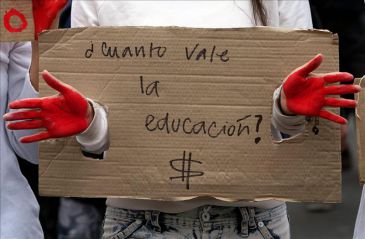 ¿cuanto vale
la
educación?
$